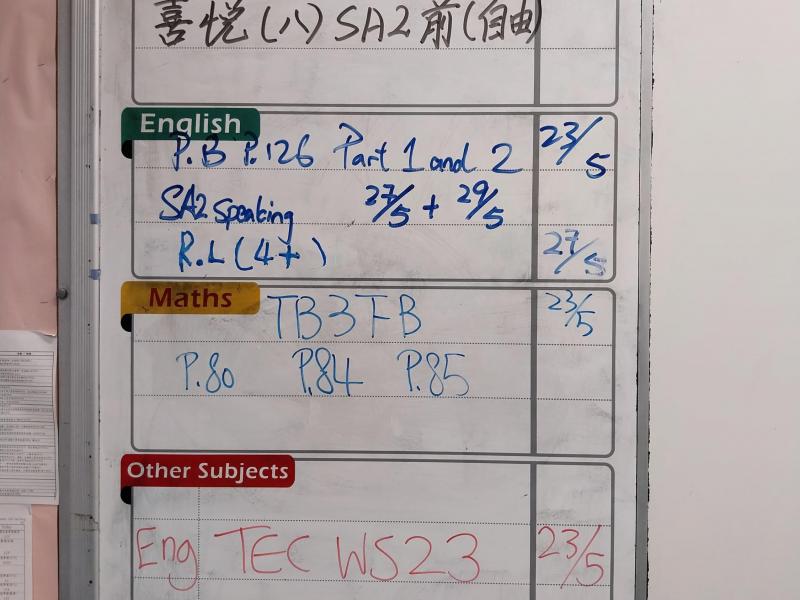 喜悦(八) SA2前(自由)
English
P.B P.126 Part 1 and 2 23/5
SA2 speaking 27/5 + 29/5
R.L (4+) 27/5
Maths
TB3FB 23/5
P.80 P.84 P.85
Other Subjects
Eng TEC WS23 23/5